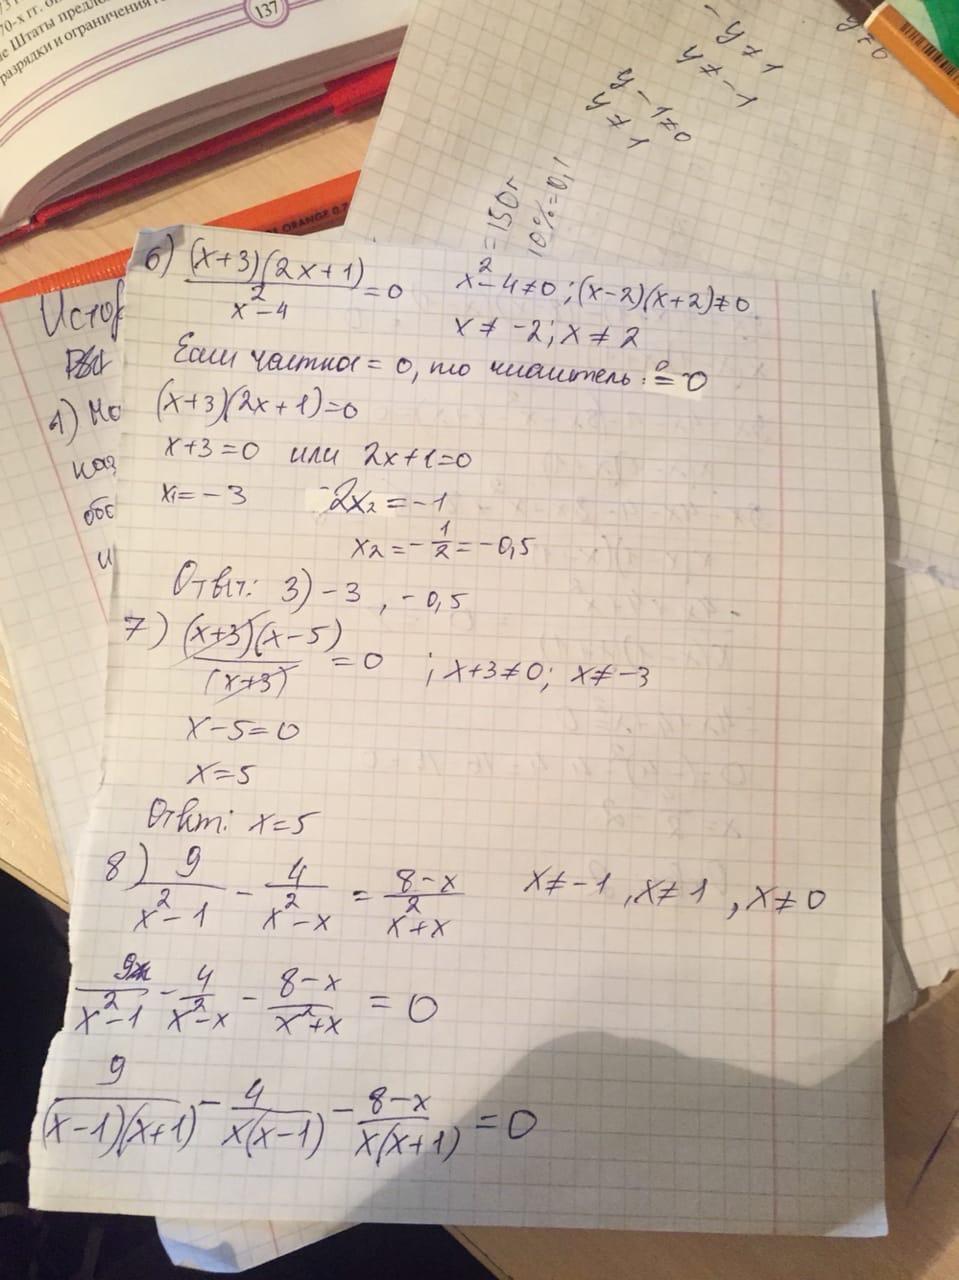 137
70-х гг.
е Штаты предло
разрядки и ограничения
- y ≠ 1
y ≠ -1
y - 1 ≠ 0
y ≠ 1
y ≠ 0
= 150 г
10% = 0,1
ORANGE 0.7
Истор
1) Но
каз
обе
и
6) (x+3)(2x+1)/x²-4 = 0 x²-4≠0; (x-2)(x+2)≠0
x ≠ -2; x ≠ 2
Если частное = 0, то числитель = 0
(x+3)(2x+1)=0
x+3=0 или 2x+1=0
x₁ = -3 2x₂ = -1
x₂ = -1/2 = -0,5
Ответ: 3) -3, -0,5
7) (x+3)(x-5)/(x+3) = 0 ; x+3≠0; x≠-3
x-5=0
x=5
Ответ: x=5
8) 9/x²-1 - 4/x²-x = 8-x/x²+x x≠-1, x≠1, x≠0
9/x²-1 - 4/x²-x - 8-x/x²+x = 0
9/(x-1)(x+1) - 4/x(x-1) - 8-x/x(x+1) = 0